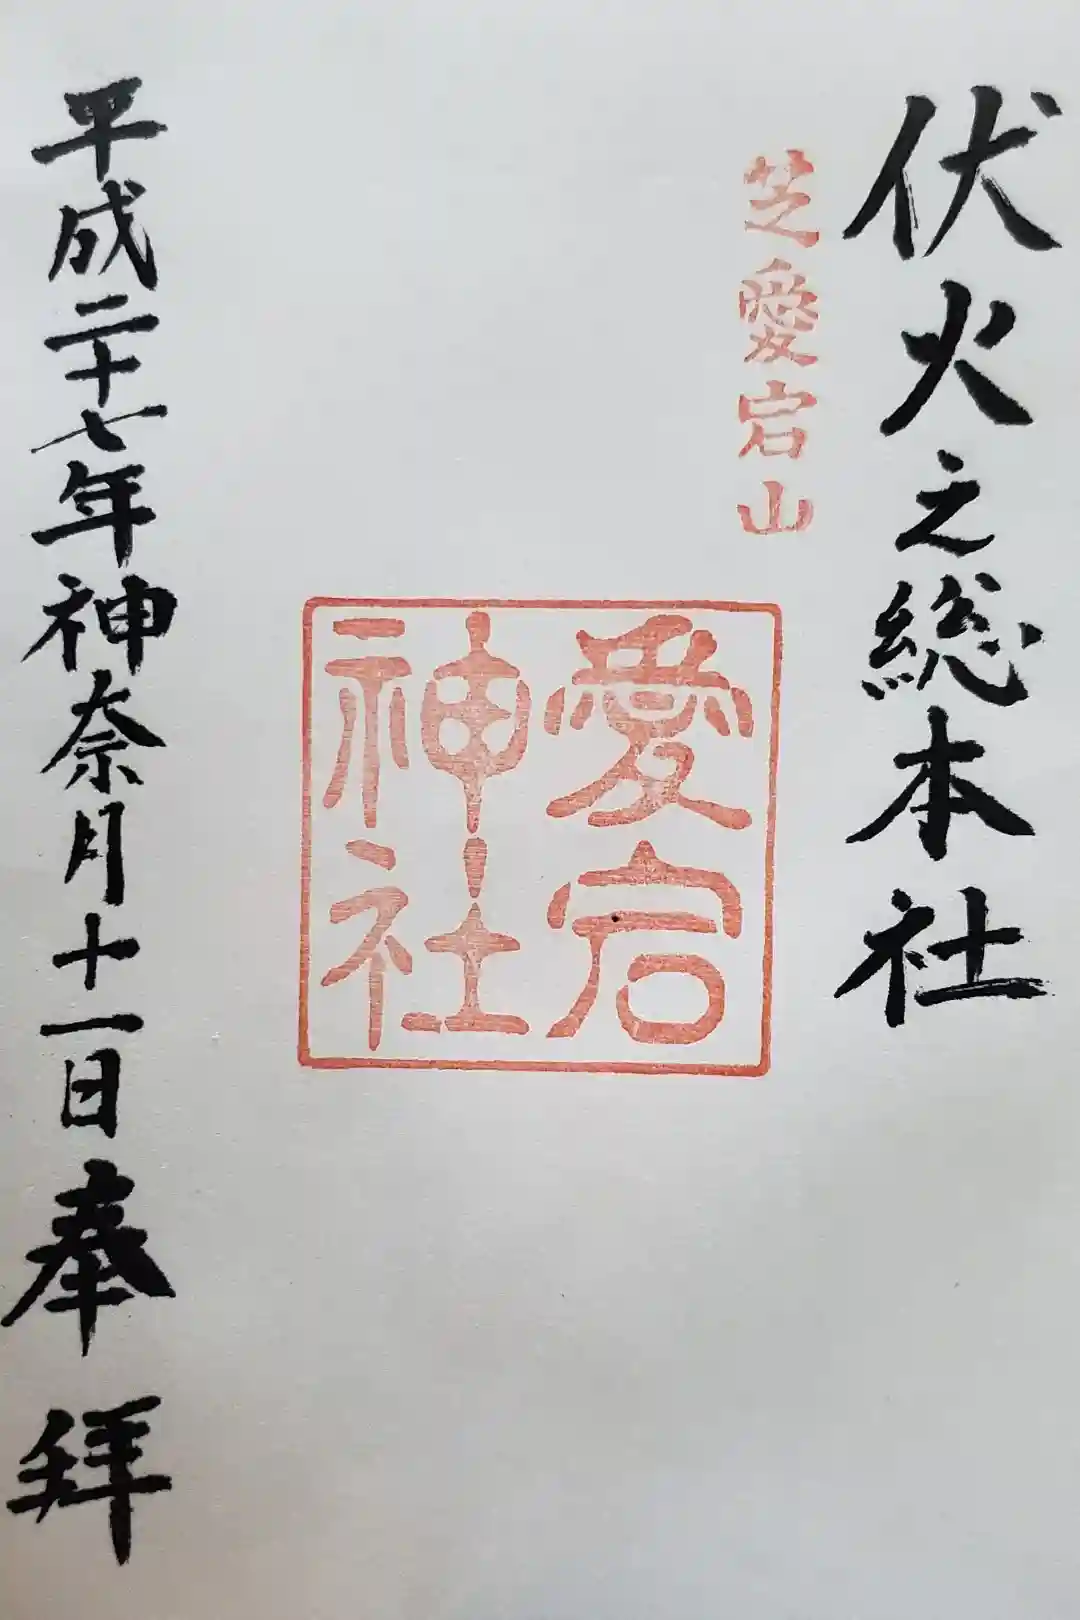 伏火之総本社
芝愛宕山
愛宕
神社
平成二十七年神奈月十一日奉拜